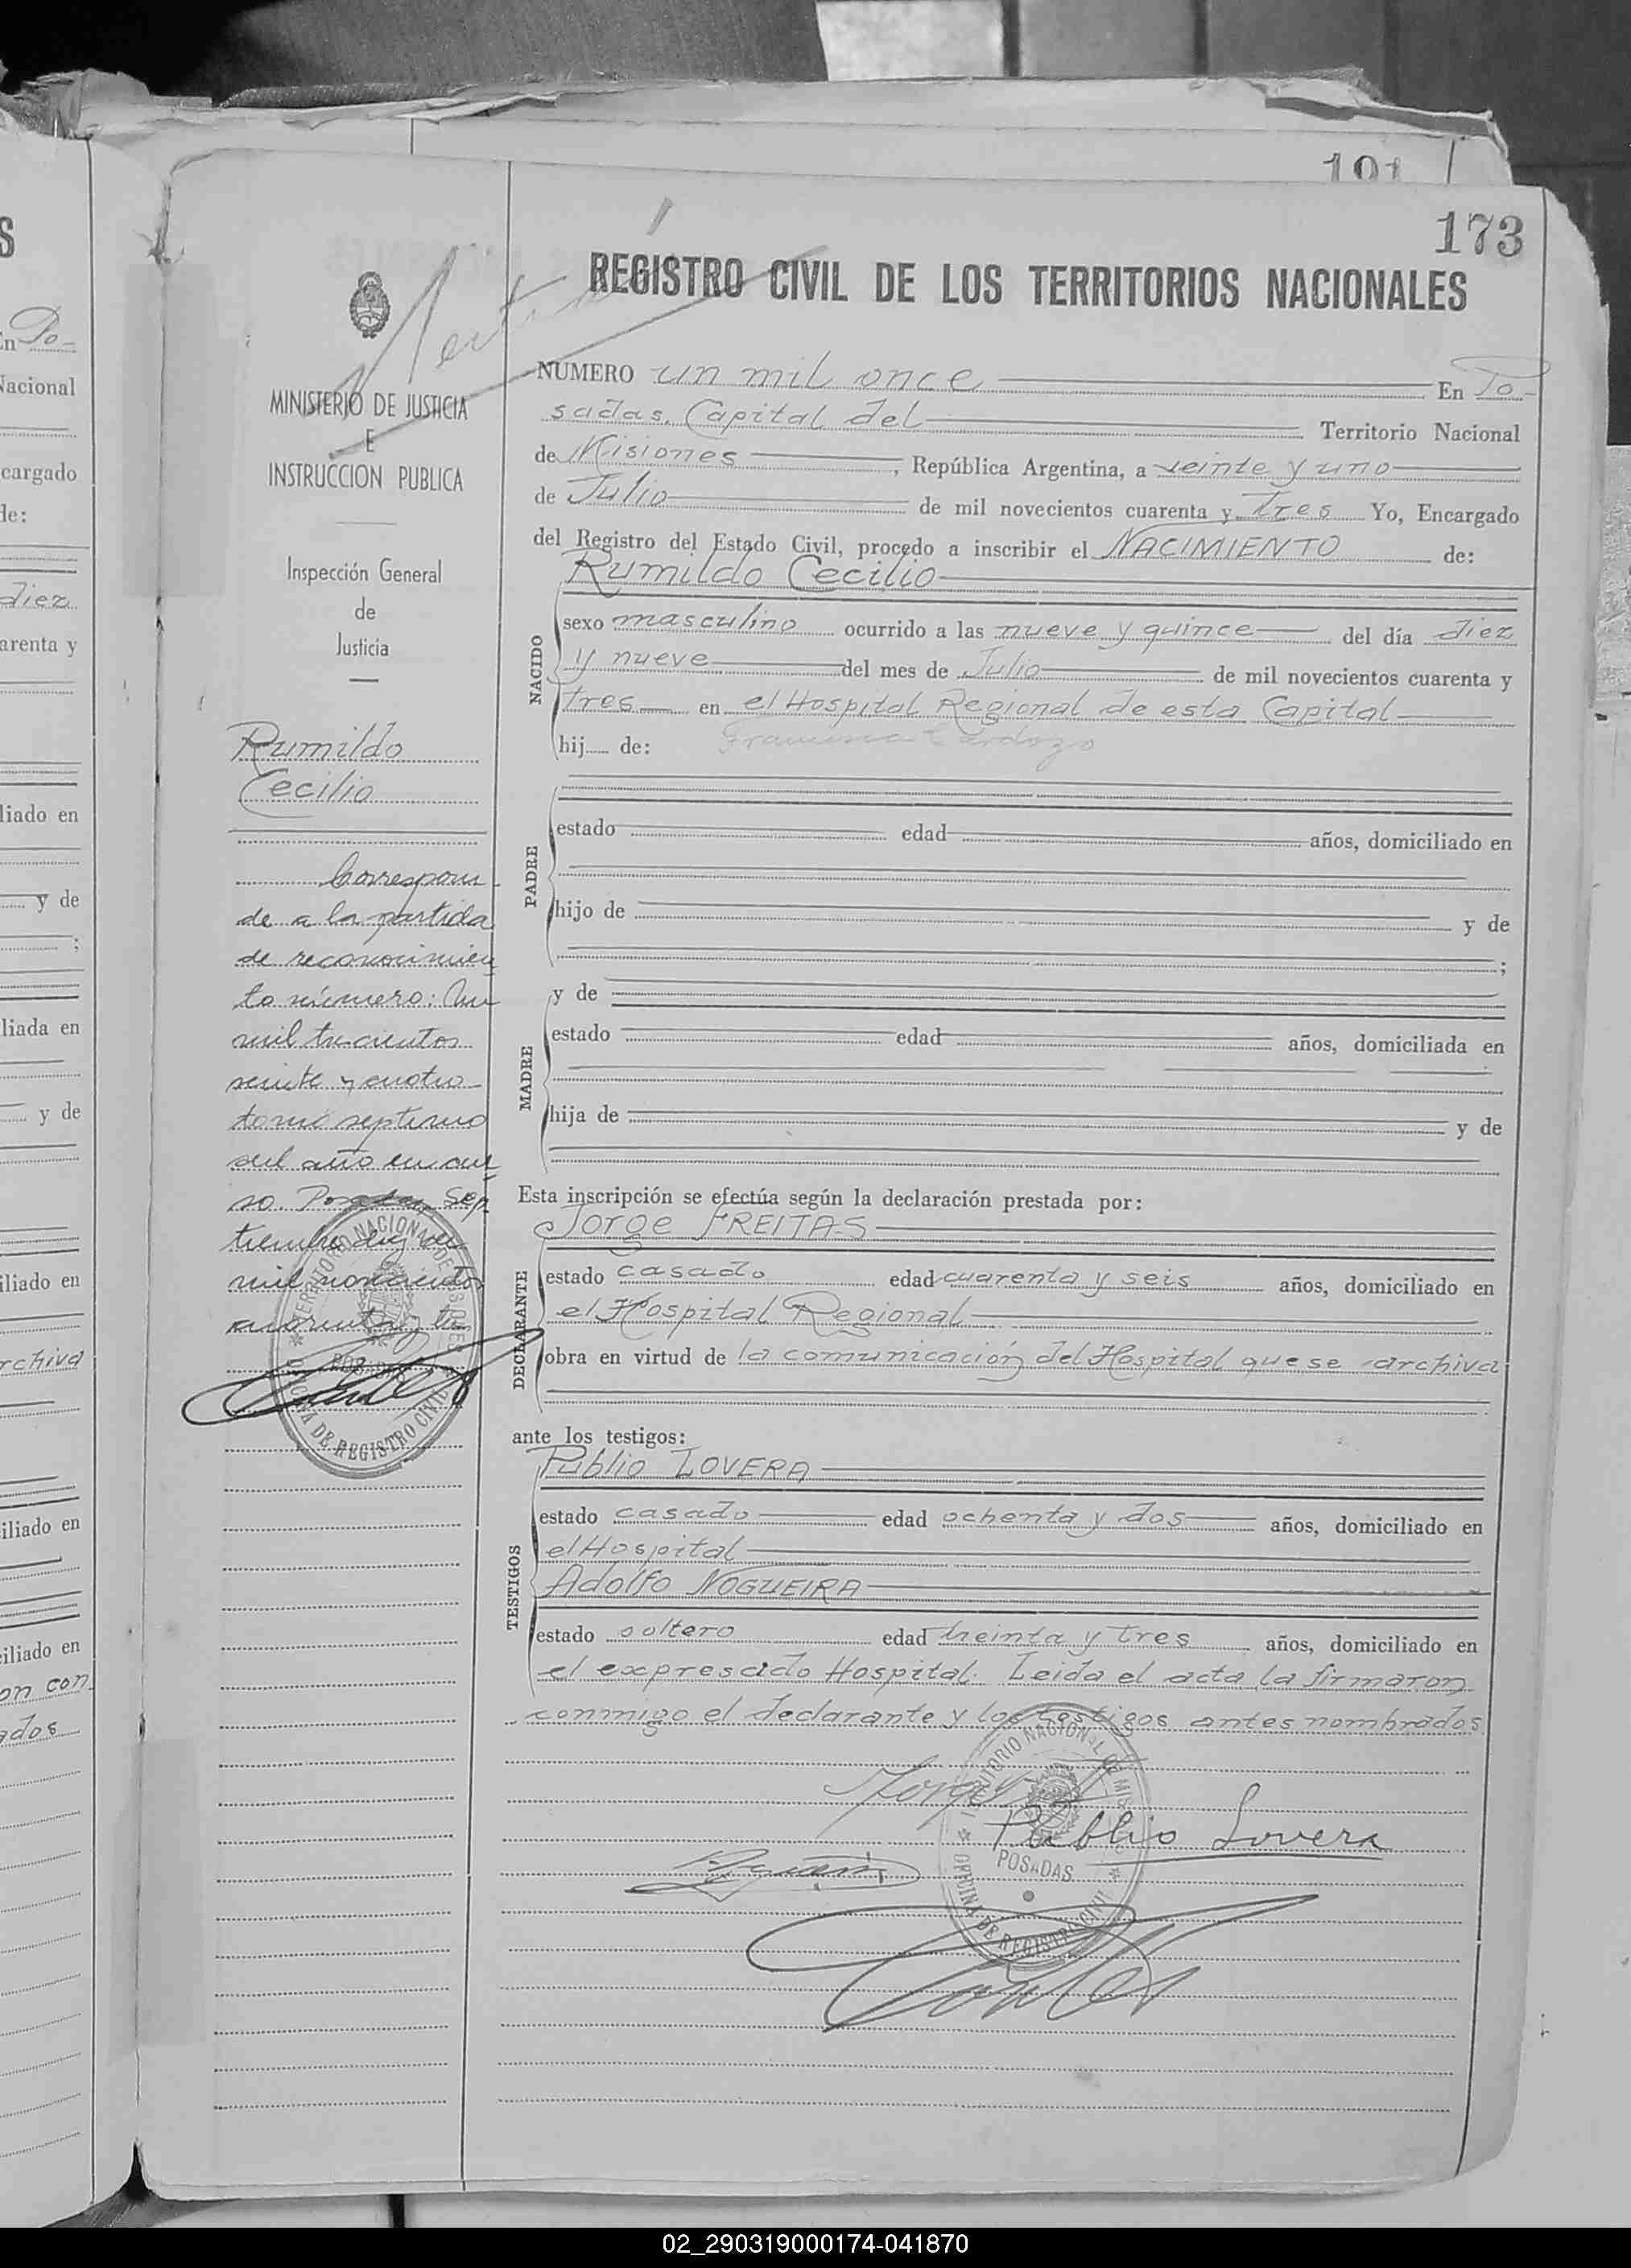 191
173
REGISTRO CIVIL DE LOS TERRITORIOS NACIONALES
MINISTERIO DE JUSTICIA
E
INSTRUCCION PUBLICA
Inspección General
de
Justicia
Rumildo
Cecilio
Correspon
de a la partida
de reconocimien
to número: Un
mil trecientos
veinte y cuatro
tomo septimo
del año en cur
so. Posadas, Sep
tiembre de
mil novecientos
cuarenta y tres
NUMERO un mil once En Po-
sadas, Capital del Territorio Nacional
de Misiones, República Argentina, a veinte y uno
de Julio de mil novecientos cuarenta y tres Yo, Encargado
del Registro del Estado Civil, procedo a inscribir el NACIMIENTO de:
Rumildo Cecilio
NACIDO
sexo masculino ocurrido a las nueve y quince del día diez
y nueve del mes de Julio de mil novecientos cuarenta y
tres en el Hospital Regional de esta Capital
hij de: Francisca Cardozo
PADRE
estado edad años, domiciliado en
hijo de y de
;
y de
MADRE
estado edad años, domiciliada en
hija de y de
Esta inscripción se efectúa según la declaración prestada por:
Jorge FREITAS
DECLARANTE
estado casado edad cuarenta y seis años, domiciliado en
el Hospital Regional
obra en virtud de la comunicación del Hospital que se archiva
ante los testigos:
Publio LOVERA
TESTIGOS
estado casado edad ochenta y dos años, domiciliado en
el Hospital
Adolfo NOGUEIRA
estado soltero edad treinta y tres años, domiciliado en
el exprescido Hospital. Leida el acta la firmaron
conmigo el declarante y los testigos antes nombrados
TERRITORIO NACIONAL DE MISIONES
POSADAS
OFICINA DE REGISTRO CIVIL
Publio Lovera
02_290319000174-041870